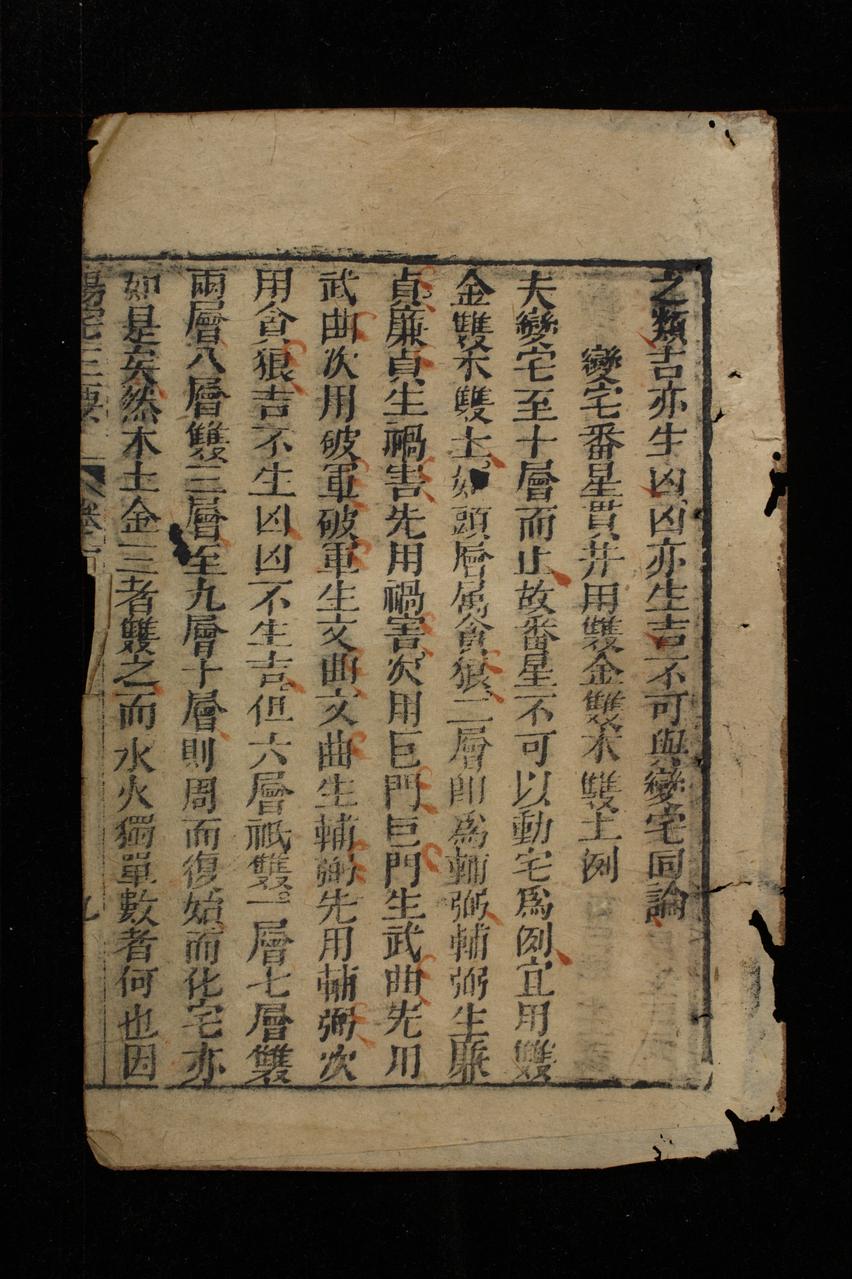 之類吉亦生凶凶亦生吉不可與變宅同論
變宅番星貫井用雙金雙木雙土例
夫變宅至十層而止故番星不可以動宅爲例宜用雙
金雙木雙土如頭層屬貪狼二層即爲輔弼輔弼生廉
貞廉貞生禍害先用禍害次用巨門巨門生武曲先用
武曲次用破軍破軍生文曲文曲生輔弼先用輔弼次
用貪狼吉不生凶凶不生吉但六層祇雙一層七層雙
兩層八層雙三層至九層十層則周而復始而化宅亦
如是矣然木土金三者雙之而水火獨單數者何也因
陽宅三要 卷二 九